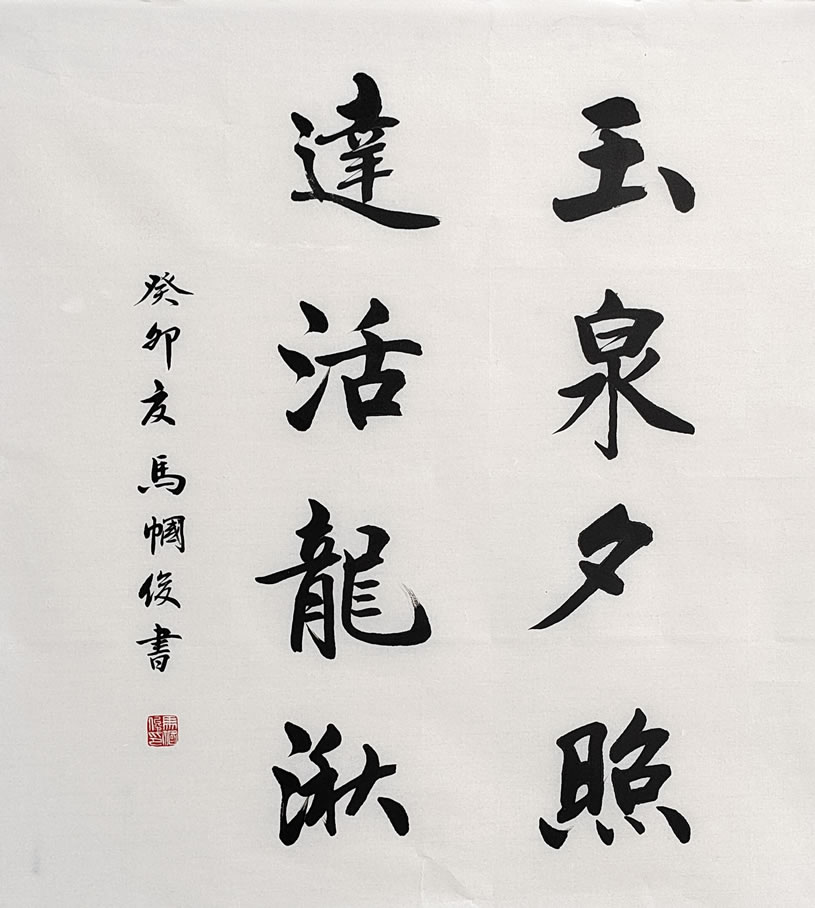 玉泉夕照
達活龍湫
癸卯友馬幗俊書